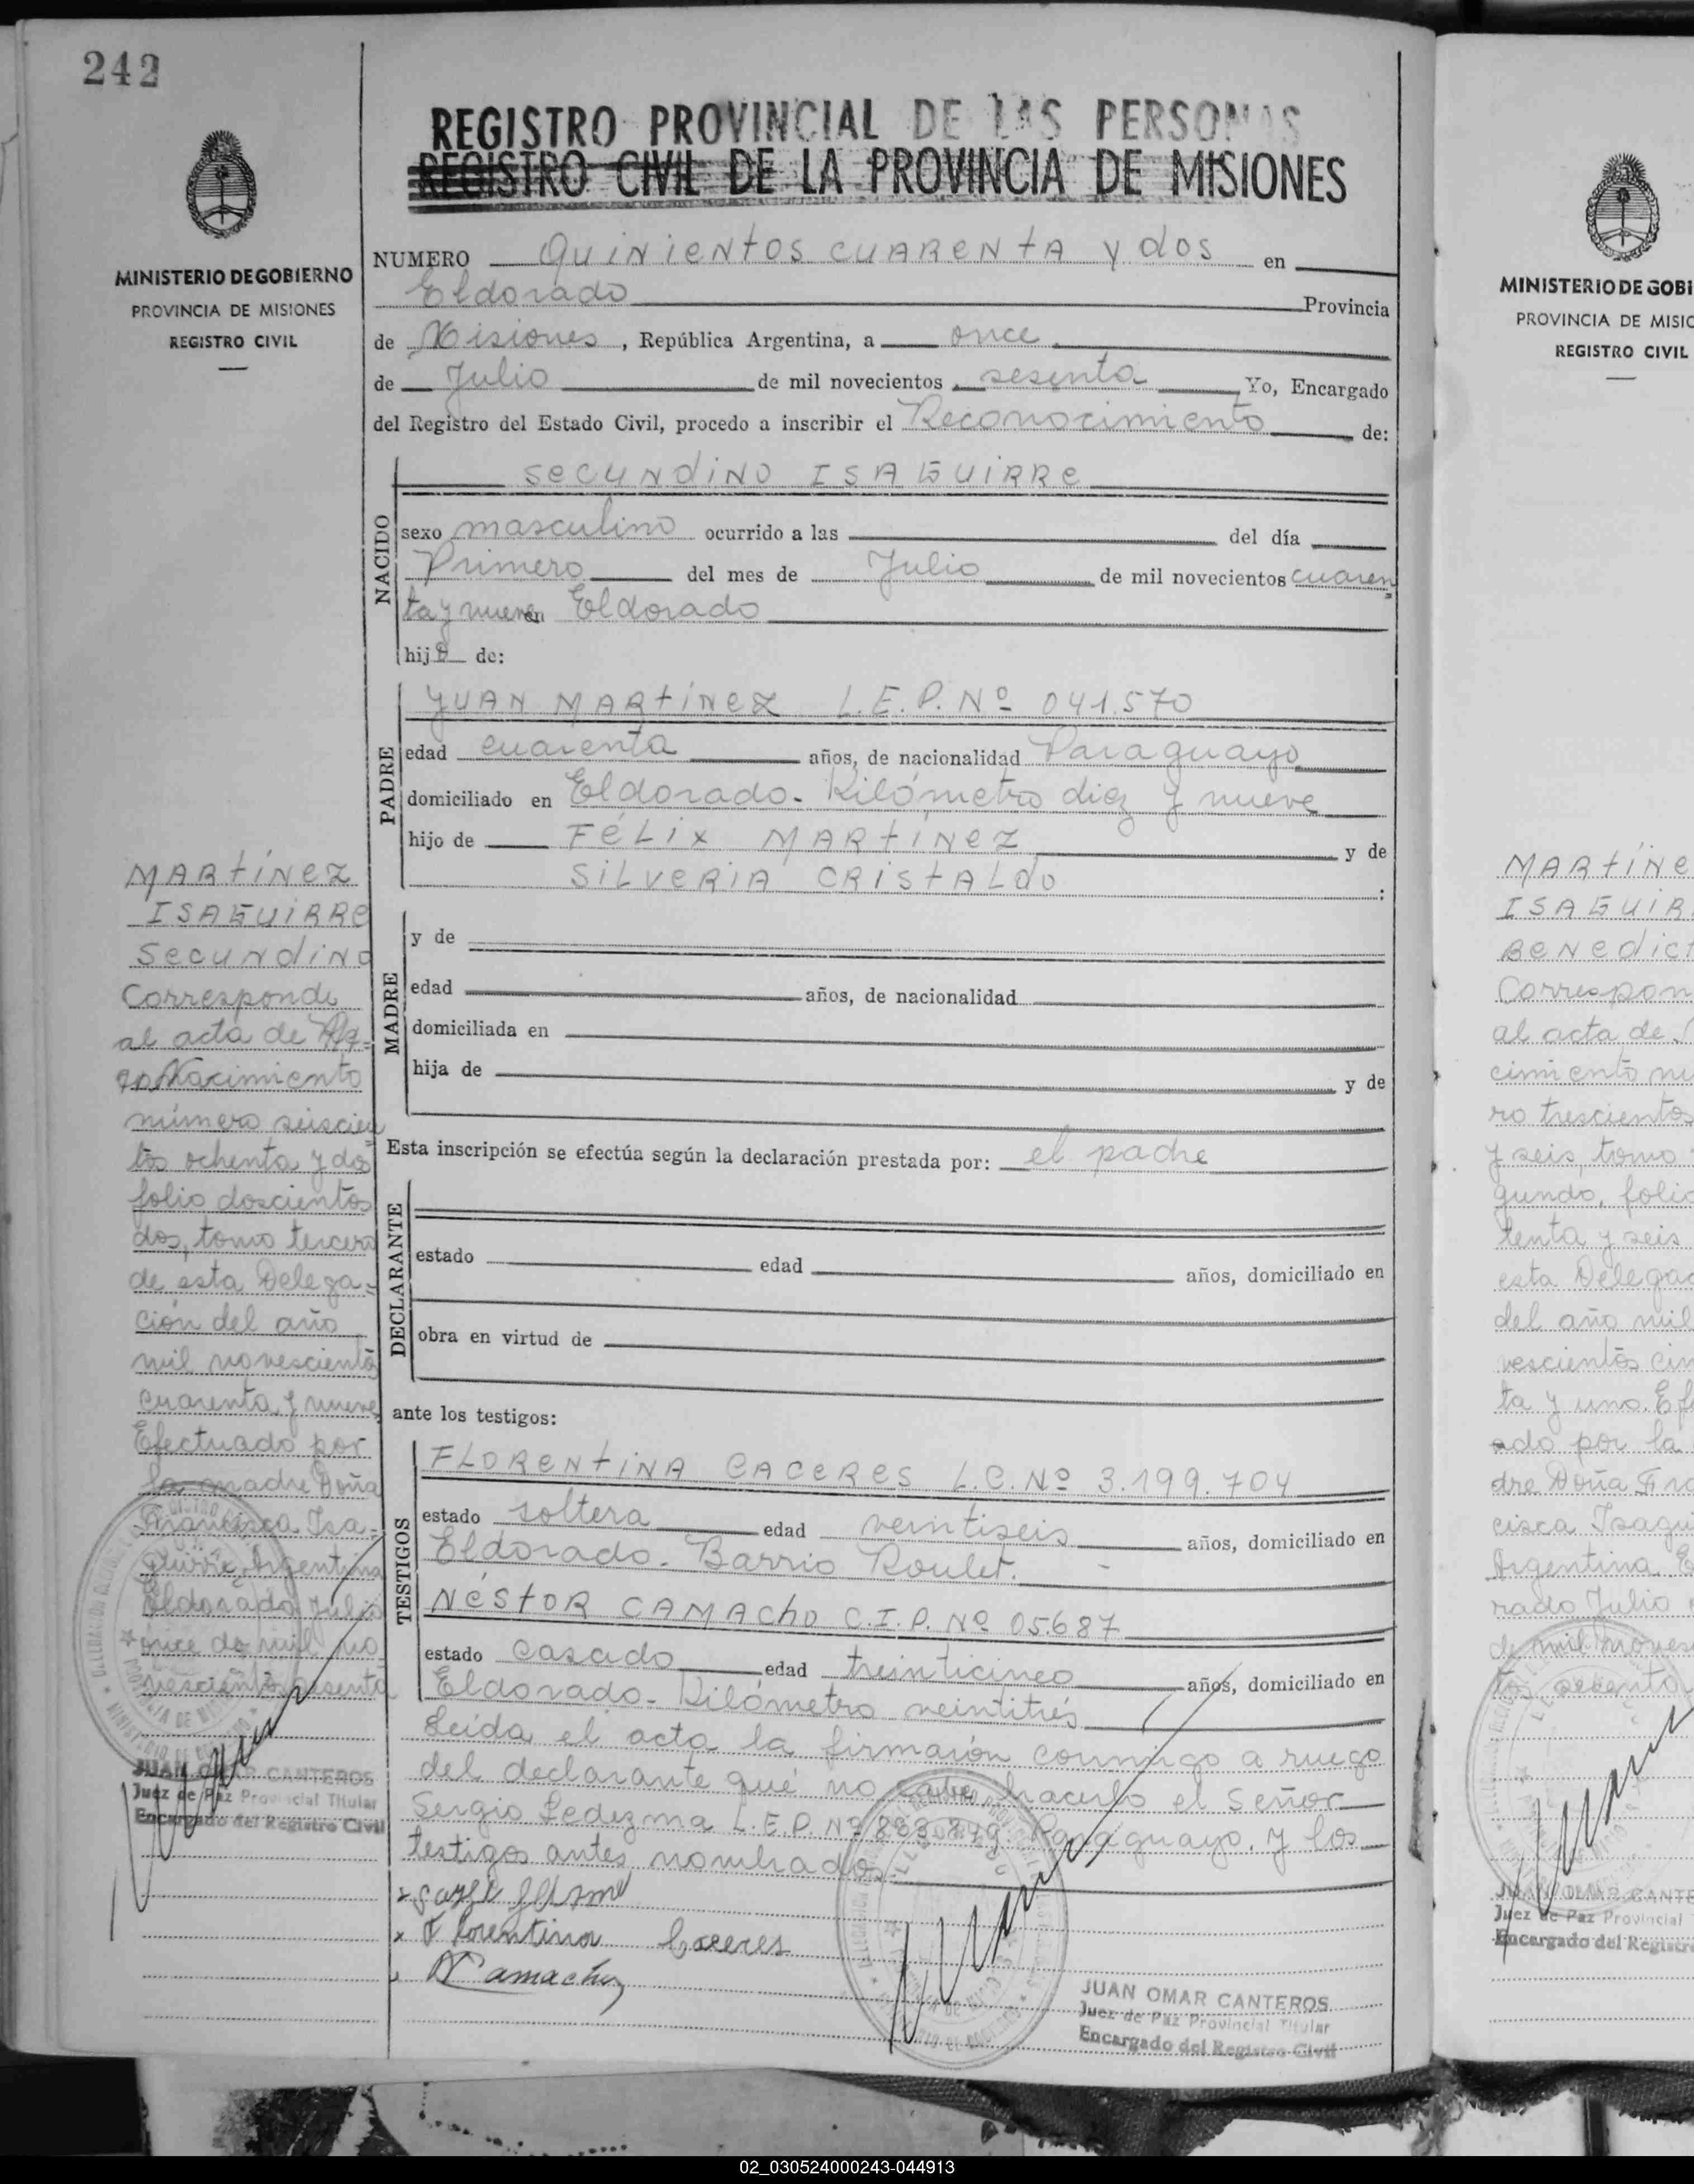 242
MINISTERIO DE GOBIERNO
PROVINCIA DE MISIONES
REGISTRO CIVIL
MARTÍNEZ
ISAGUIRRE
Secundino
Corresponde
al acta de
Nacimiento
número seiscien
tos ochenta y dos
folio doscientos
dos, tomo tercero
de esta Delega-
ción del año
mil novescientos
cuarenta y nueve
Efectuado por
la madre Doña
Francisca Isa-
guirre, Argentina
Eldorado Julio
once de mil no
vescientos sesenta
JUAN OMAR CANTEROS
Juez de Paz Provincial Titular
Encargado del Registro Civil
REGISTRO PROVINCIAL DE LAS PERSONAS
REGISTRO CIVIL DE LA PROVINCIA DE MISIONES
NUMERO QUINIENTOS CUARENTA Y DOS en
Eldorado Provincia
de Misiones, República Argentina, a once
de Julio de mil novecientos sesenta Yo, Encargado
del Registro del Estado Civil, procedo a inscribir el Reconocimiento de:
NACIDO
SECUNDINO ISAGUIRRE
sexo masculino ocurrido a las del día
Primero del mes de Julio de mil novecientos cuaren
ta y nueve en Eldorado
hijo de:
PADRE
JUAN MARTÍNEZ L.E.P. Nº 041.570
edad cuarenta años, de nacionalidad Paraguayo
domiciliado en Eldorado. Kilómetro diez y nueve
hijo de FÉLIX MARTÍNEZ y de
SILVERIA CRISTALDO ;
MADRE
y de
edad años, de nacionalidad
domiciliada en
hija de y de
Esta inscripción se efectúa según la declaración prestada por: el padre
DECLARANTE
estado edad años, domiciliado en
obra en virtud de
ante los testigos:
TESTIGOS
FLORENTINA CACERES L.C. Nº 3.199.704
estado soltera edad veintiseis años, domiciliado en
Eldorado. Barrio Roulet. -
NÉSTOR CAMACHO C.I.P. Nº 05.687
estado casado edad treinticinco años, domiciliado en
Eldorado - Kilómetro veintitrés
Leída el acta la firmarón conmigo a ruego
del declarante qué no sabe hacerlo el Señor
Sergio Ledezma L.E.P. Nº Paraguayo. y los
testigos antes nombrados
x Florentina Caceres
N Camacho
JUAN OMAR CANTEROS
Juez de Paz Provincial Titular
Encargado del Registro Civil
MINISTERIO DE GOBI
PROVINCIA DE MISIO
REGISTRO CIVIL
MARTÍNE
ISAGUIR
BENEDICT
Correspon
al acta de
cimiento nú
ro trescientos
y seis, tomo
gundo, folio
tenta y seis
esta Delegac
del año mil
vescientos cin
ta y uno. Ef
ado por la
dre Doña Fra
cisca Isagui
Argentina E
rado Julio
de mil noves
tos sesenta
JUAN OMAR CANTE
Juez de Paz Provincial
Encargado del Registro
02_030524000243-044913